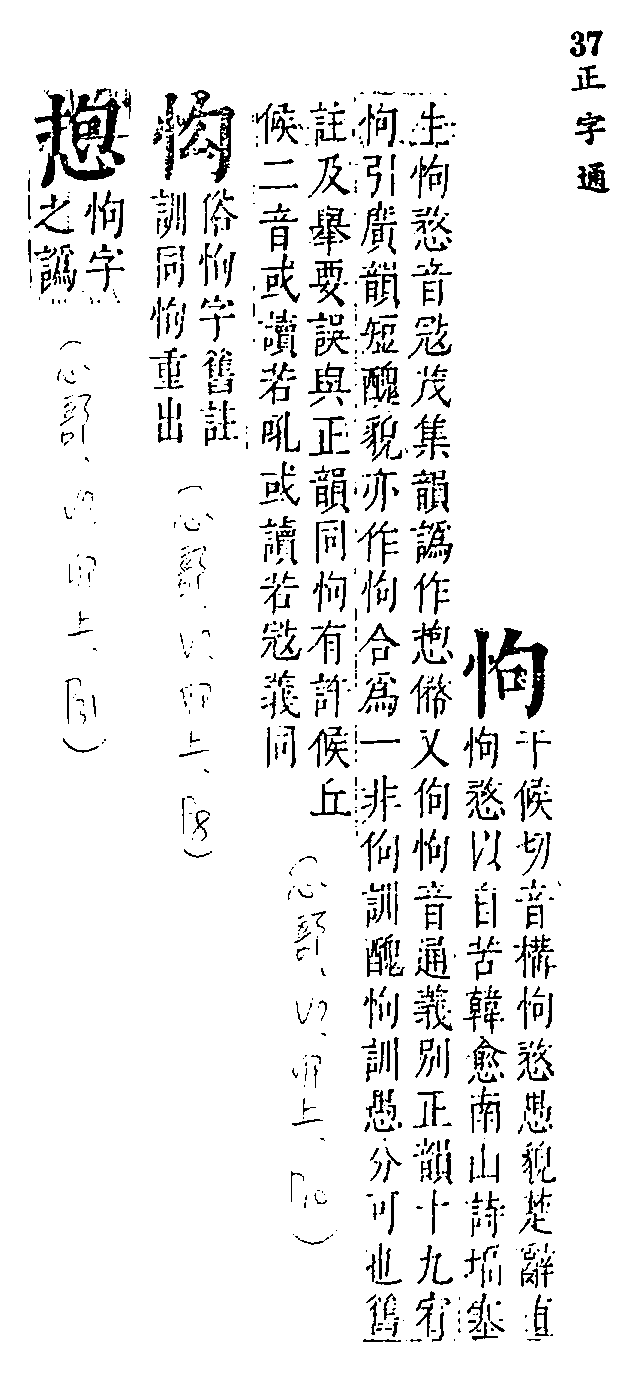 37 正字通
怐
干候切音構怐愗愚貌楚辭直
怐愗以自苦韓愈南山詩堛塞
生怐愗音冦茂集韻譌作㤧偹又佝怐音通義別正韻十九宥
怐引廣韻短醜貌亦作怐合爲一非佝訓醜怐訓愚分可也舊
註及舉要誤與正韻同怐有許候丘
候二音或讀若吼或讀若冦義同
(心部、卯上、P10)
俗怐字舊註
訓同怐重出
(心部、卯上、P8)
怐字
之譌
(心部、卯上、P31)